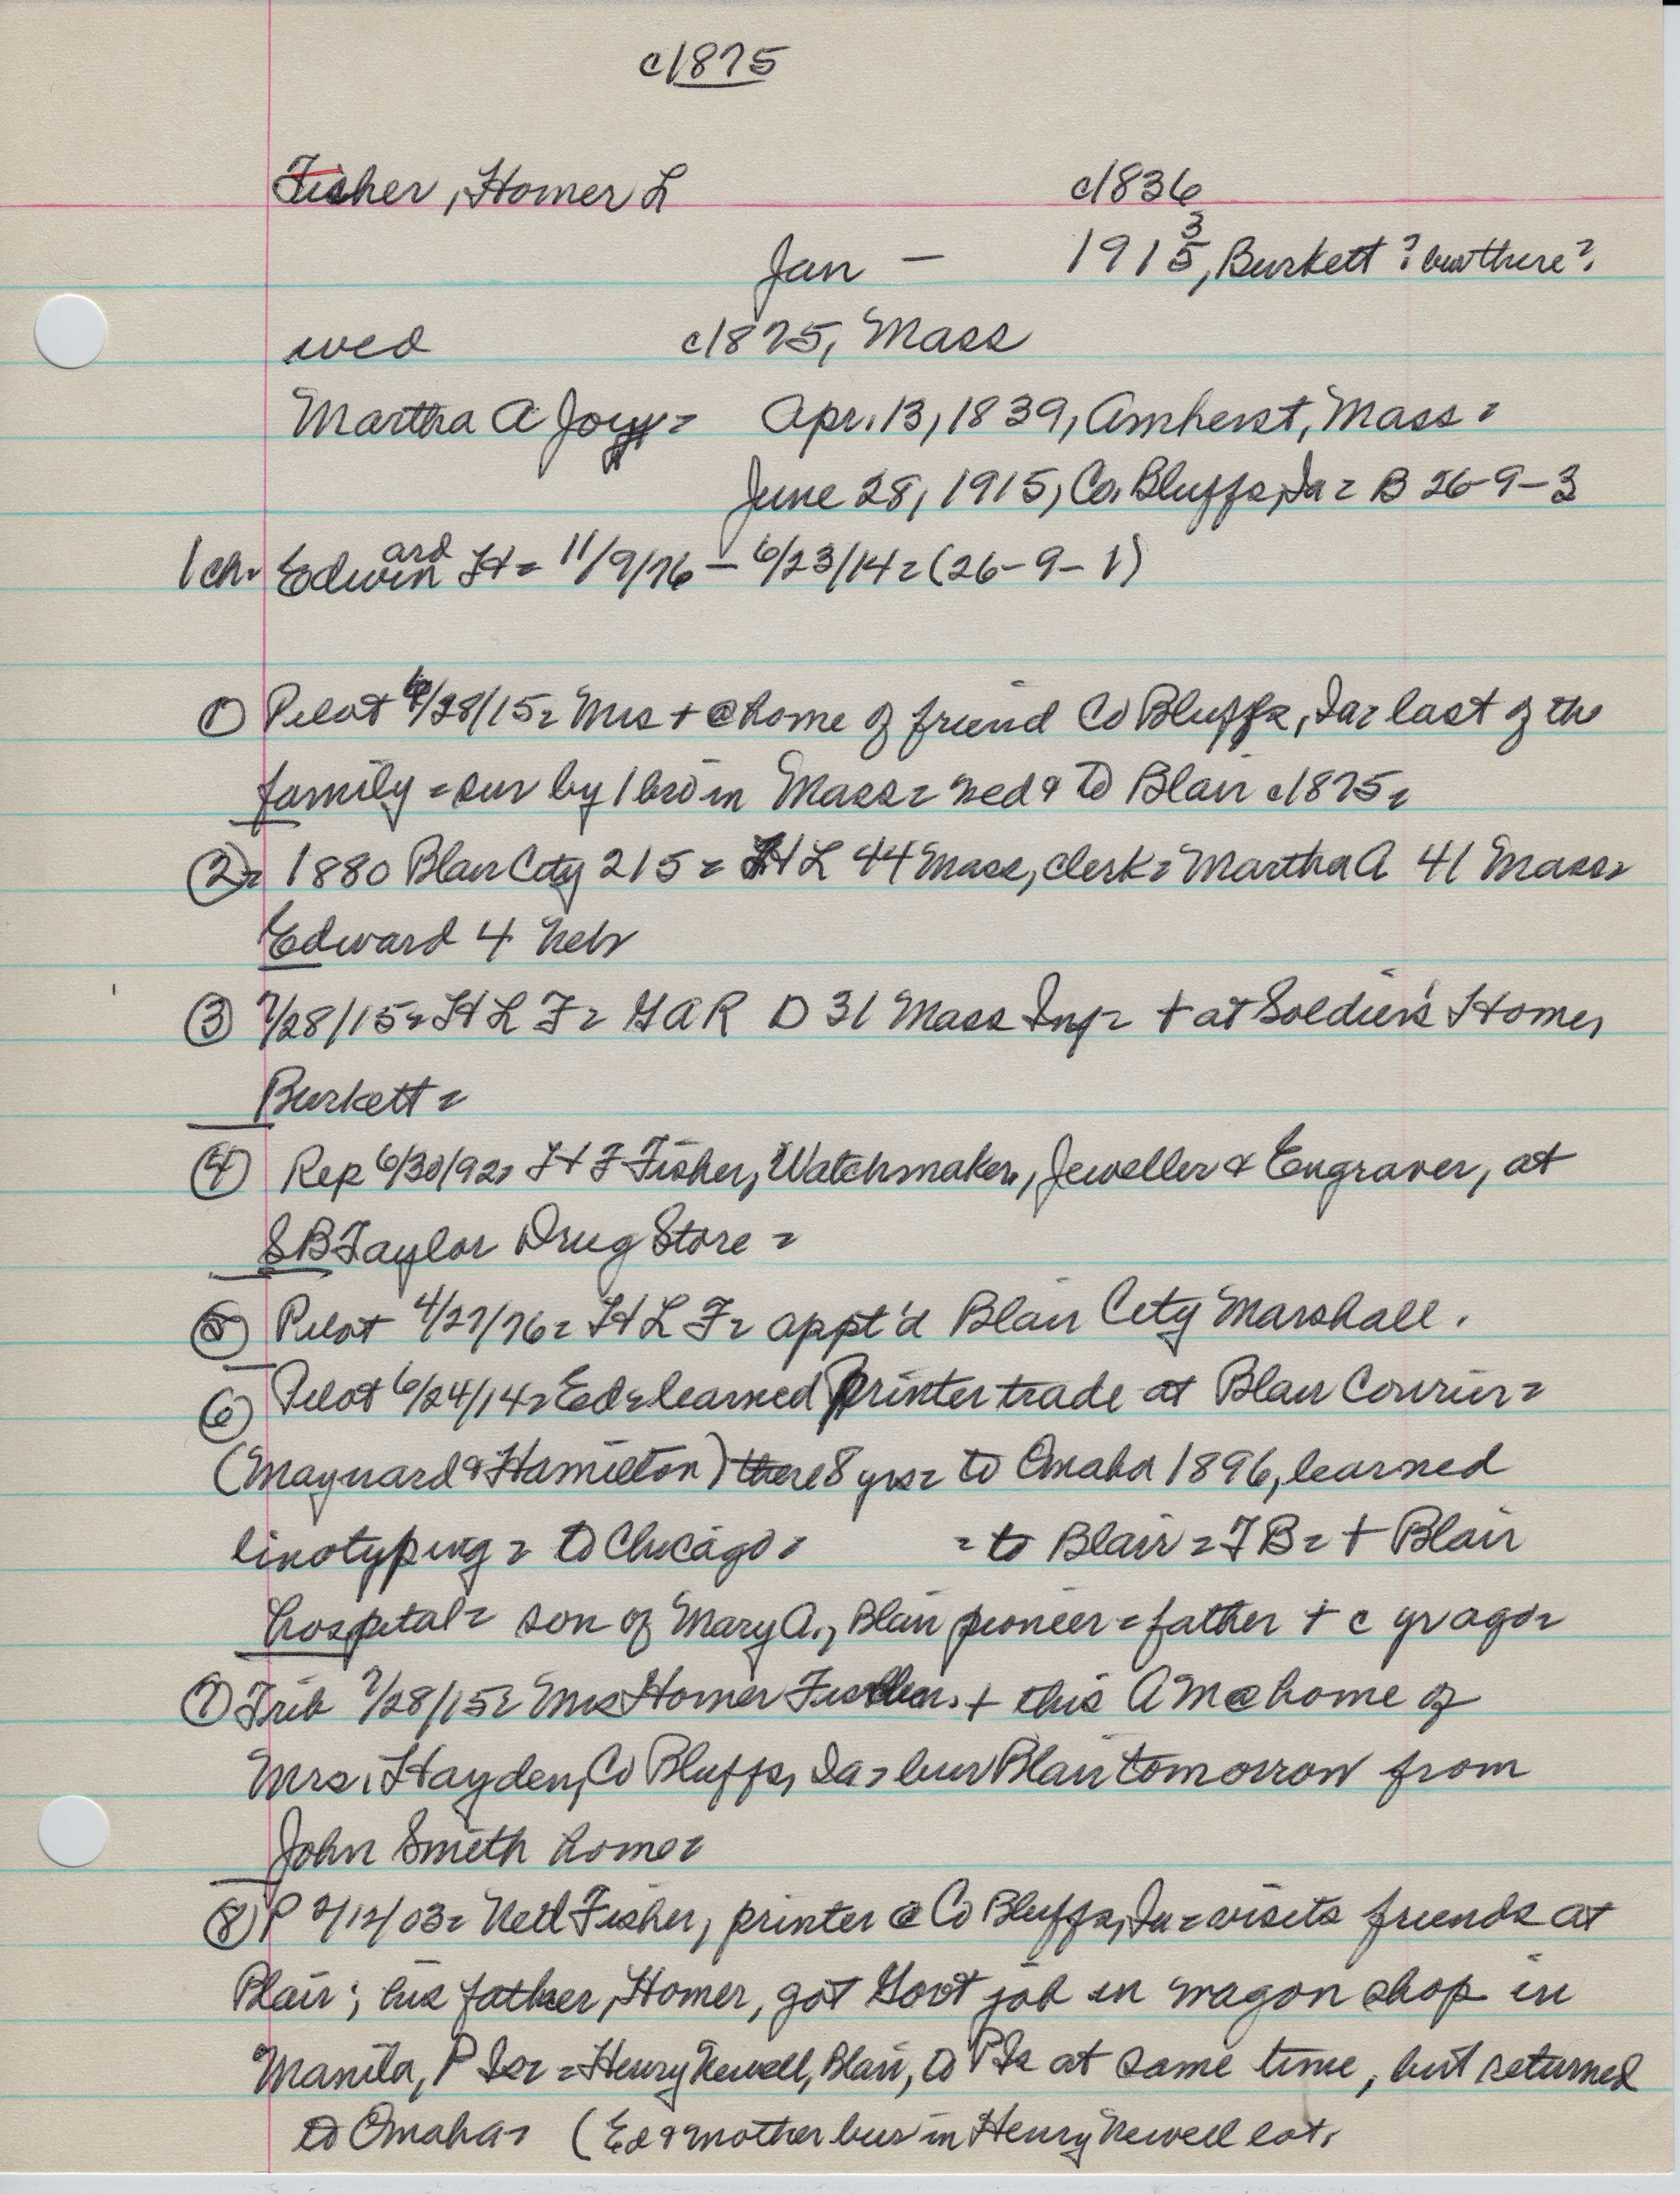 c1875
Fisher, Homer L c1836
Jan - 1915 3, Burkett? bur there?
wed c1875, Mass
Martha A Joy = Apr. 13, 1839, Amherst, Mass =
June 28, 1915, Co. Bluffs, Ia = B 26-9-3
1 ch. Edwin ard H = 11/9/76 - 6/23/14 = (26-9-1)
① Pilot 6/28/15 = Mrs + @ home of friend Co Bluffs, Ia = last of the
family = sur by 1 bro in Mass = wed & to Blair c1875 =
② = 1880 Blair City 215 = H L 44 Mass, clerk = Martha A 41 Mass =
Edward 4 Neb
③ 7/28/15 = H L F = GAR D 31 Mass Inf = + at Soldier's Home,
Burkett =
④ Rep 6/30/92 = H F Fisher, Watchmaker, Jeweller & Engraver, at
SB Taylor Drug Store =
⑤ Pilot 4/27/76 = H L F = appt'd Blair City Marshall.
⑥ Pilot 6/24/14 = Ed = learned printer trade at Blair Courier =
(Maynard & Hamilton) there 8 yrs = to Omaha 1896, learned
linotyping = to Chicago = = to Blair = TB = + Blair
hospital = son of Mary A., Blair pioneer = father + c yr ago =
⑦ Trib 7/28/15 = Mrs Homer Fisher. + this AM @ home of
Mrs. Hayden, Co Bluffs, Ia = bur Blair tomorrow from
John Smith home =
⑧ P 2/12/03 = Fisher, printer @ Co Bluffs, Ia = visits friends at
Blair; his father, Homer, got Govt job in wagon shop in
Manila, P Is = = Henry Newell, Blair, to P Is at same time, but returned
to Omaha = (Ed & mother bur in Henry Newell lot.